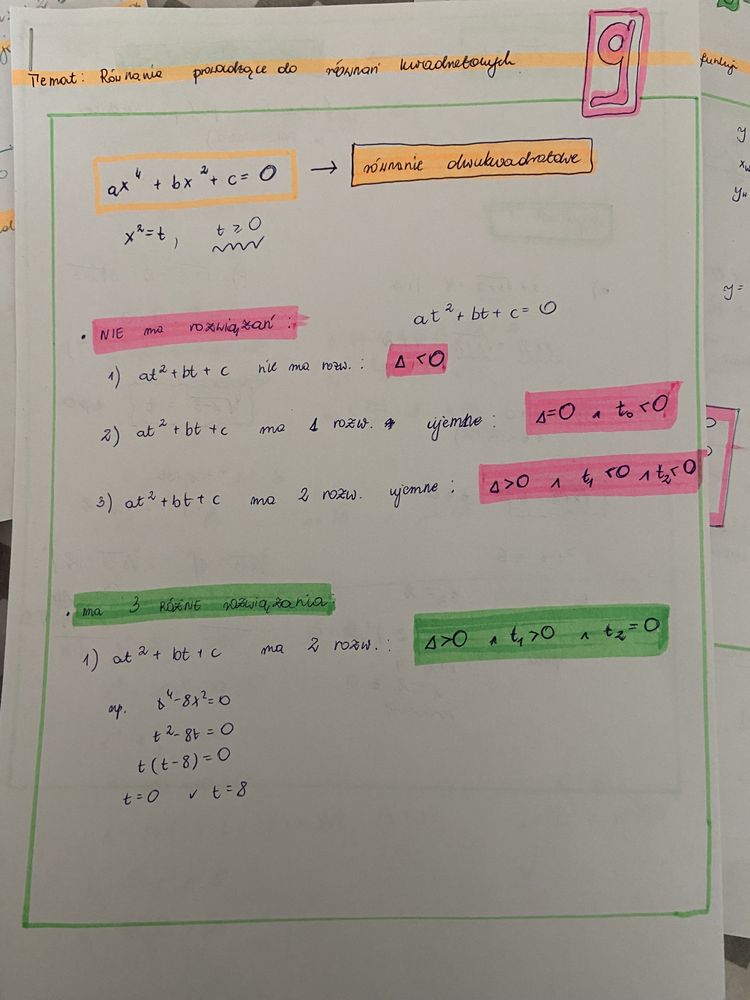 Temat: Równania prowadzące do równań kwadratowych
9
ax⁴ + bx² + c = 0 → równanie dwukwadratowe
x² = t, t ≥ 0
at² + bt + c = 0
• NIE ma rozwiązań:
1) at² + bt + c nie ma rozw.: Δ < 0
2) at² + bt + c ma 1 rozw. ujemne: Δ = 0 ∧ t₀ < 0
3) at² + bt + c ma 2 rozw. ujemne: Δ > 0 ∧ t₁ < 0 ∧ t₂ < 0
• ma 3 RÓŻNE rozwiązania:
1) at² + bt + c ma 2 rozw.: Δ > 0 ∧ t₁ > 0 ∧ t₂ = 0
np. x⁴ - 8x² = 0
t² - 8t = 0
t(t - 8) = 0
t = 0 ∨ t = 8
funkcji
y
y =